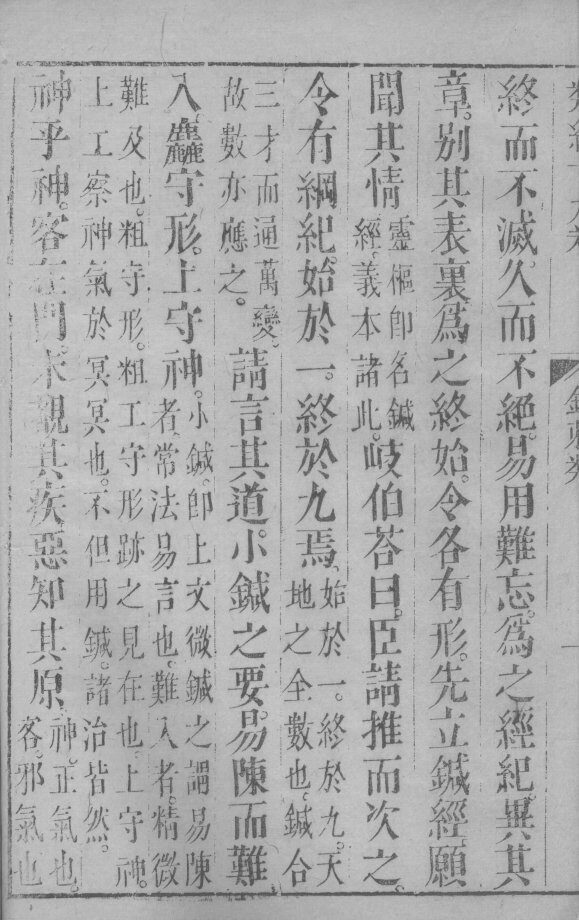 終而不滅。久而不絶。易用難忘。爲之經紀。異其
章。別其表裏。爲之終始。令各有形。先立鍼經。願
聞其情
靈樞卽名鍼
經。義本諸此。
岐伯荅曰。臣請推而次之。
令有綱紀。始於一。終於九焉。
始於一。終於九。天
地之全數也。鍼合
三才而通萬變。
故數亦應之。
請言其道。小鍼之要。易陳而難
入。麤守形。上守神。
小鍼。卽上文微鍼之謂。易陳
者。常法易言也。難入者。精微
難及也。粗守形。粗工守形跡之見在也。上守神。
上工察神氣於冥冥也。不但用鍼。諸治皆然。
神乎神。客在門。未覩其疾。惡知其原
神。正氣也。
客。邪氣也